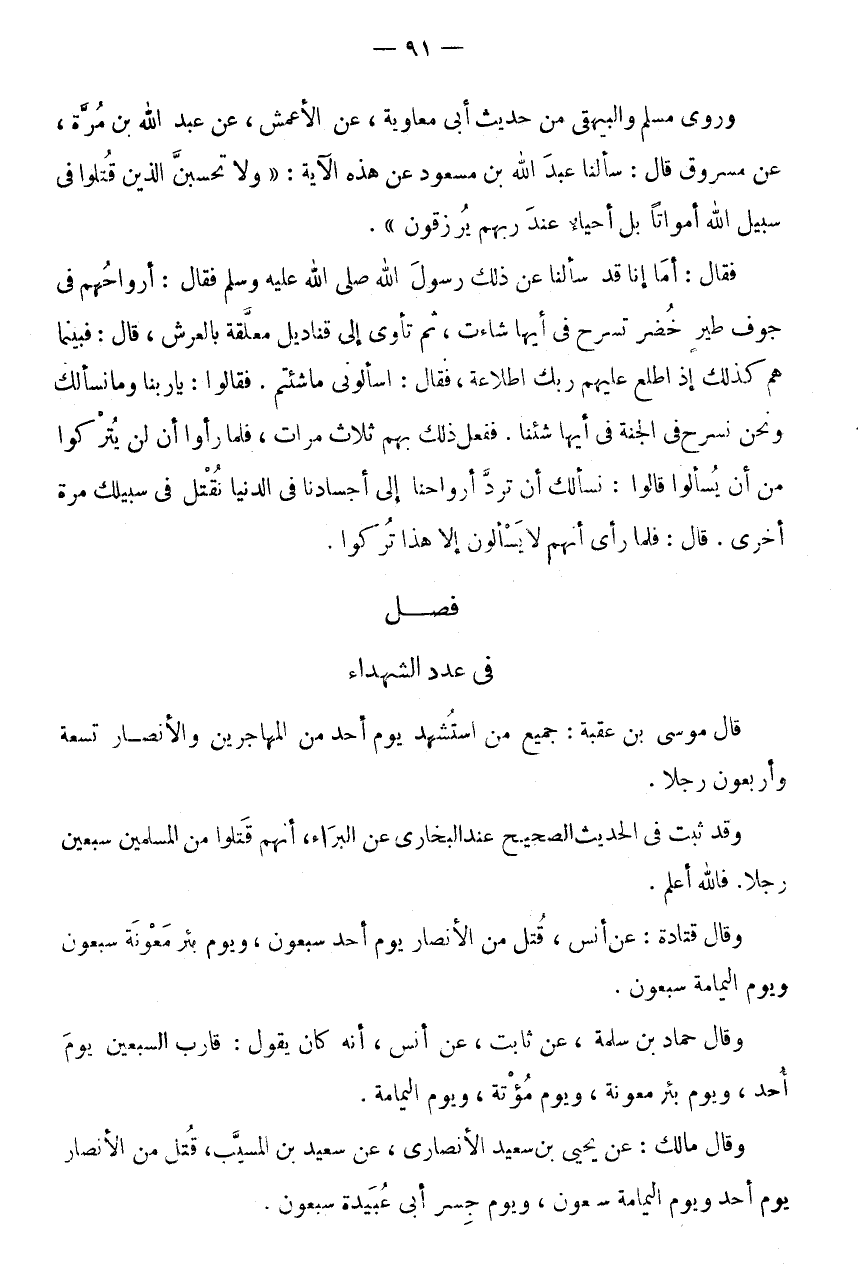 — ٩١ —
وروى مسلم والبيهقى من حديث أبى معاوية ، عن الأعمش ، عن عبد الله بن مُرَّة ،
عن مسروق قال : سألنا عبدَ الله بن مسعود عن هذه الآية : « ولا تحسبنَّ الذين قُتلوا فى
سبيل الله أمواتاً بل أحياء عندَ ربهم يُرزقون » .
فقال : أمَا إنا قد سألنا عن ذلك رسولَ الله صلى الله عليه وسلم فقال : أرواحُهم فى
جوف طيرٍ خُضر تسرح فى أيها شاءت ، ثم تأوى إلى قناديل معلَّقة بالعرش ، قال : فبينما
هم كذلك إذ اطلع عليهم ربك اطلاعة ، فقال : اسألونى ماشئتم . فقالوا : ياربنا ومانسألك
ونحن نسرح فى الجنة فى أيها شئنا . ففعل ذلك بهم ثلاث مرات ، فلما رأوا أن لن يُتْركوا
من أن يُسألوا قالوا : نسألك أن تردَّ أرواحنا إلى أجسادنا فى الدنيا نُقْتل فى سبيلك مرة
أخرى . قال : فلما رأى أنهم لا يَسْألون إلا هذا تُركوا .
فصـــل
فى عدد الشهداء
قال موسى بن عقبة : جميع من استُشهد يوم أحد من المهاجرين والأنصـار تسعة
وأربعون رجلا .
وقد ثبت فى الحديث الصحيح عند البخارى عن البرَاء، أنهم قَتلوا من المسلمين سبعين
رجلا. فالله أعلم .
وقال قتادة : عن أنس ، قُتل من الأنصار يوم أحد سبعون ، ويوم بئر مَعْونَة سبعون
ويوم اليمامة سبعون .
وقال حماد بن سلمة ، عن ثابت ، عن أنس ، أنه كان يقول : قارب السبعين يومَ
أُحد ، ويوم بئر معونة ، ويوم مُؤْتة ، ويوم اليمامة .
وقال مالك : عن يحيى بن سعيد الأنصارى ، عن سعيد بن المسيَّب، قُتل من الأنصار
يوم أحد ويوم اليمامة سبعون ، ويوم جِسر أبى عُبَيدة سبعون .